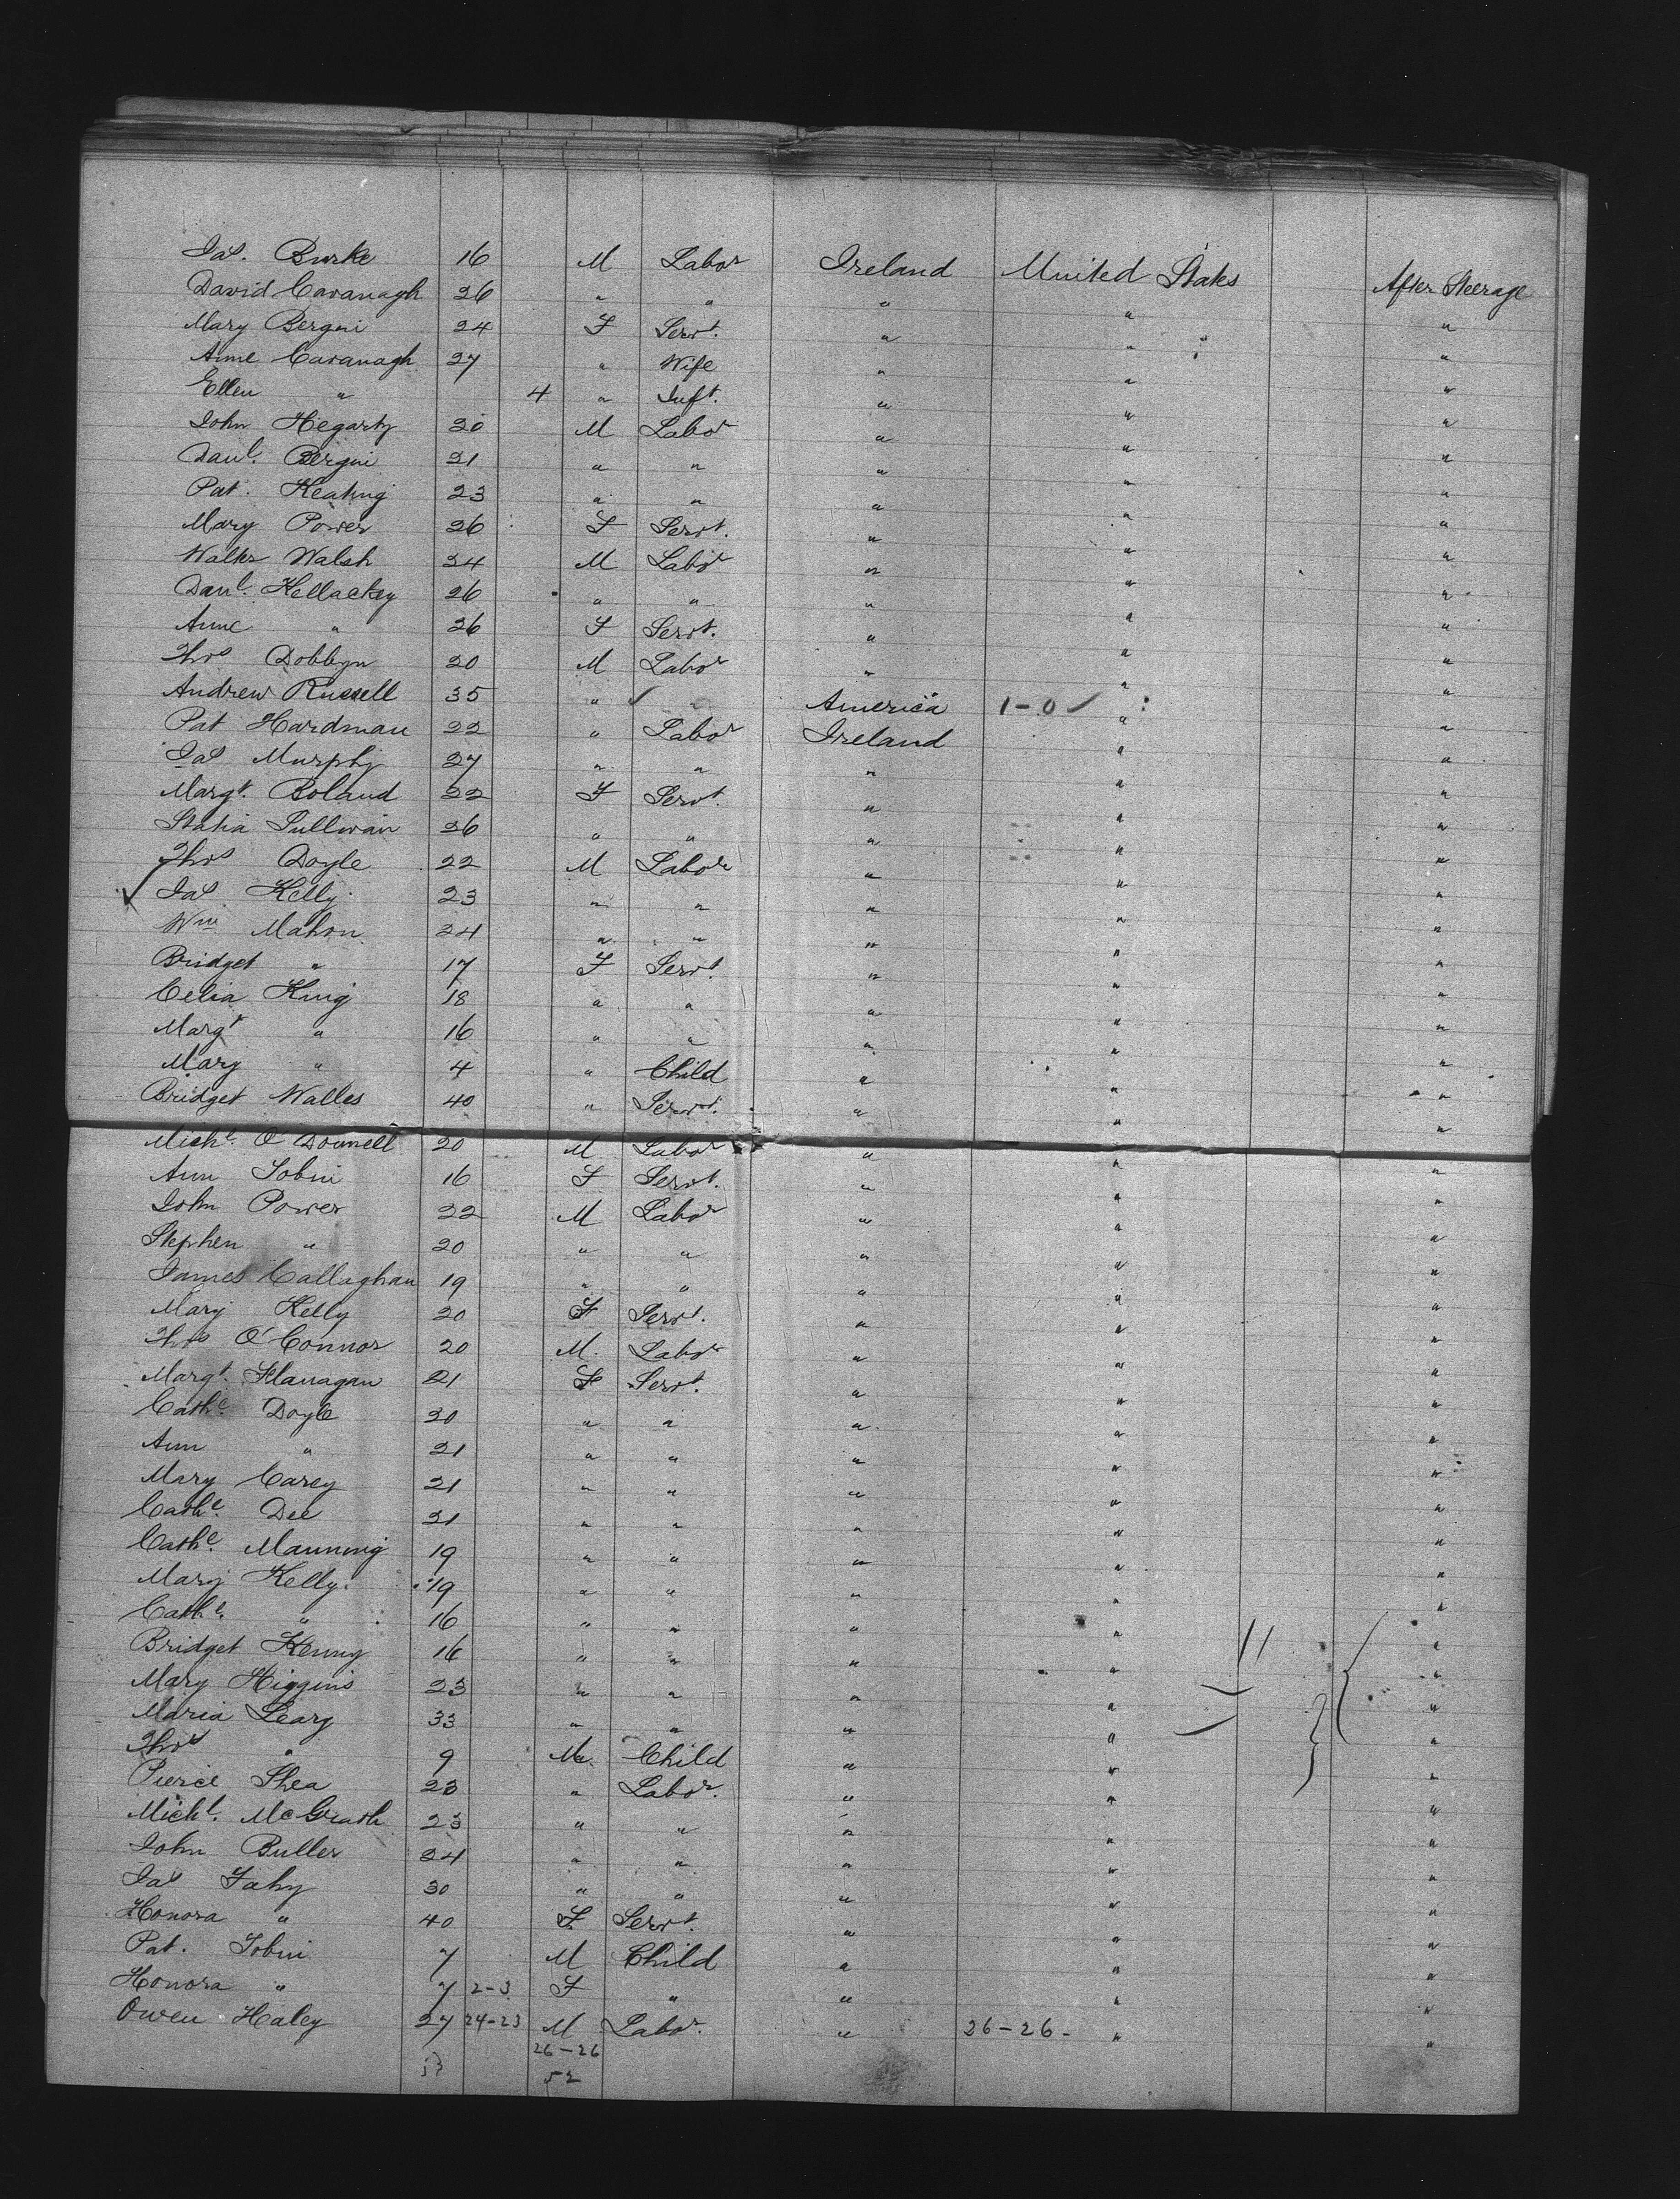 Jas. Burke 16 M Labor Ireland United States After Steerage
David Cavanagh 26 " " " " "
Mary Bergin 24 F Servt. " " "
Anne Cavanagh 27 " Wife " " "
Ellen " 4 " Inft. " " "
John Hegarty 20 M Labor " " "
Danl. Bergin 21 " " " " "
Pat. Keating 23 " " " " "
Mary Power 26 F Servt. " " "
Walter Walsh 24 M Labor " " "
Danl. Kellackey 26 " " " " "
Anne " 26 F Servt. " " "
Thos Dobbyn 20 M Labor " " "
Andrew Russell 35 " ✓ America 1-0 ✓ " "
Pat Hardman 22 " Labor Ireland " "
Jas Murphy 27 " " " " "
Margt. Boland 22 F Servt. " " "
Statia Sullivan 26 " " " " "
Thos Doyle 22 M Labor " " "
✓ Jas Kelly 23 " " " " "
Wm Mahon 24 " " " " "
Bridget " 17 F Servt. " " "
Celia King 18 " " " " "
Margt " 16 " " " " "
Mary " 4 " Child " " "
Bridget Walles 40 " Servt. " " "
Michl. O'Donnell 20 M Labor " " "
Ann Tobin 16 F Servt. " " "
John Power 22 M Labor " " "
Stephen " 20 " " " " "
James Callaghan 19 " " " " "
Mary Kelly 20 F Servt. " " "
Thos O'Connor 20 M. Labor " " "
Margt. Flanagan 21 F Servt. " " "
Cathe. Doyle 20 " " " " "
Ann " 21 " " " " "
Mary Carey 21 " " " " "
Cathe. Dee 21 " " " " "
Cathe. Manning 19 " " " " "
Mary Kelly. 19 " " " " "
Cathe. " 16 " " " " "
Bridget Kenny 16 " " " 11 "
Mary Higgins 23 " " " " "
Maria Leary 33 " " " " "
Thos " 9 M. Child " " "
Pierce Shea 23 " Labor. " " "
Michl. McGrath 23 " " " " "
John Butler 24 " " " " "
Jas Fahy 30 " " " " "
Honora " 40 F. Servt. " " "
Pat. Tobin 7 M Child " " "
Honora " 7 2-3 F " " " "
Owen Haley 27 24-23 M Labor. " 26-26- " "
26-26
52